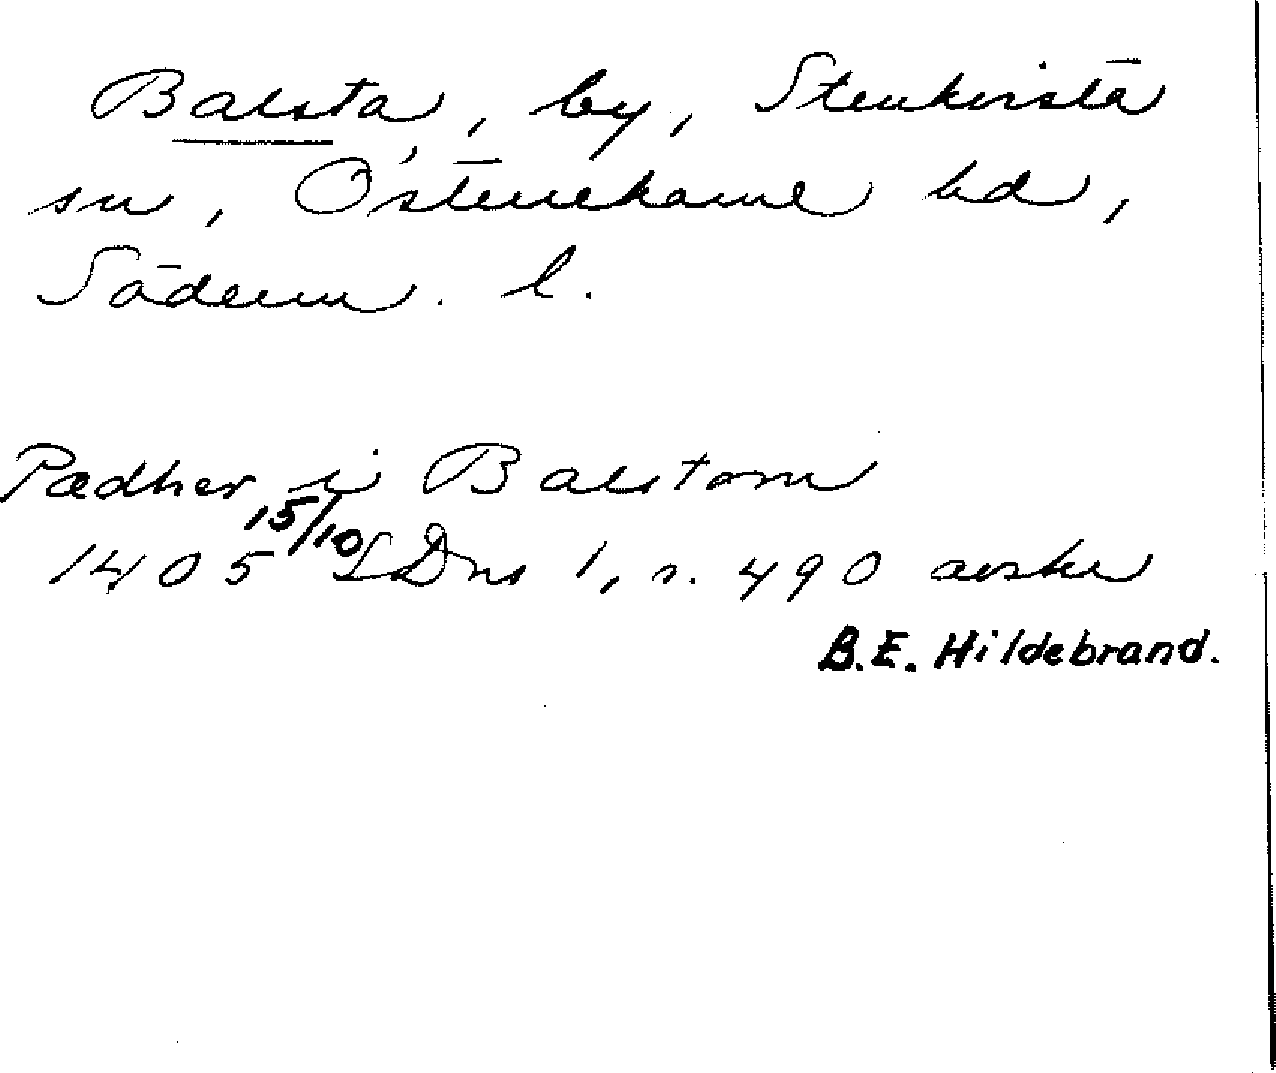 Balsta, by, Stenkvista
sn, Österrekarne hd,
Söderm. l.
Pædher i Balstom
1405 15/10 SDns 1, s. 490 avskr
B.E. Hildebrand.